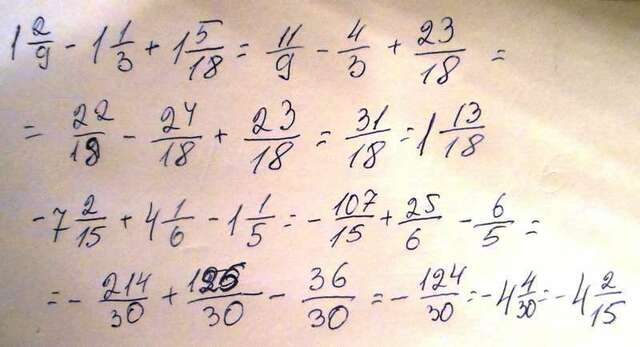 1 2/9 - 1 1/3 + 1 5/18 = 11/9 - 4/3 + 23/18 =
= 22/18 - 24/18 + 23/18 = 31/18 = 1 13/18
-7 2/15 + 4 1/6 - 1 1/5 = - 107/15 + 25/6 - 6/5 =
= - 214/30 + 126/30 - 36/30 = - 124/30 = -4 4/30 = -4 2/15